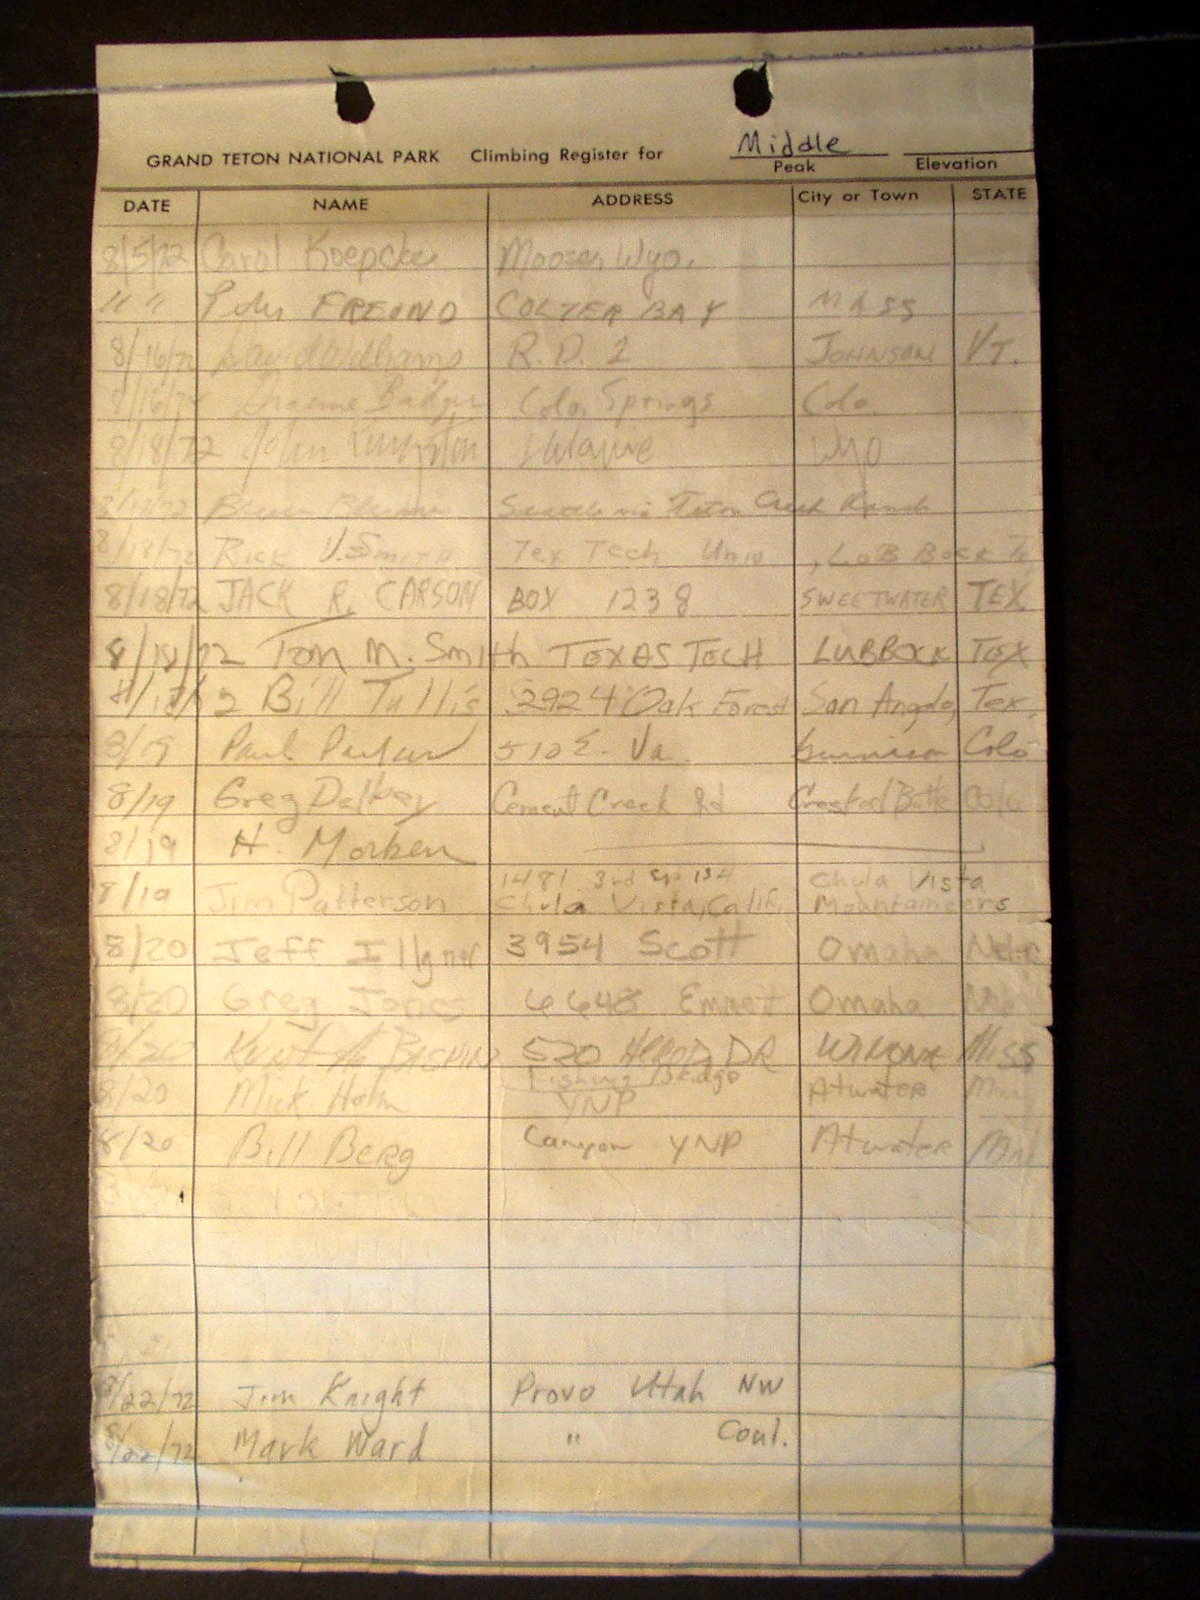 Middle
GRAND TETON NATIONAL PARK Climbing Register for
Peak Elevation
DATE NAME ADDRESS City or Town STATE
8/5/72 Carol Koepcke Moose, Wyo.
" " Peter FREUND COLTER BAY MASS
8/16/72 David Williams R.D. 2 JOHNSON VT.
8/16/72 Badger Colo. Springs Colo.
8/18/72 John Kingston Wyo
Teton Creek Ranch
8/18/72 RICK V. SMITH Tex Tech Univ , LUBBOCK
8/18/72 JACK R. CARSON BOX 1238 SWEETWATER TEX
8/18/72 Tom M. Smith TEXAS TECH LUBBOCK TEX
8/18/72 Bill Tullis 2924 Oak Forest San Angelo, Tex.
8/19 Paul 510 E. Va. Gunnison Colo
8/19 Greg Cement Creek Rd Crested Butte Colo
8/19 H.
8/19 Jim Patterson 1481 3rd Sp 134 Chula Vista
Chula Vista, Calif. Mountaineers
8/20 Jeff Illgner 3954 Scott Omaha Nebr
8/20 Greg Jones 6648 Emmet Omaha
8/20 520 DR Miss
8/20 Mick Holm Fishing Bridge Atwater Minn
YNP
8/20 Bill Berg Canyon YNP Atwater Mn
8/22/72 Jim Knight Provo Utah NW
8/22/72 Mark Ward " Coul.